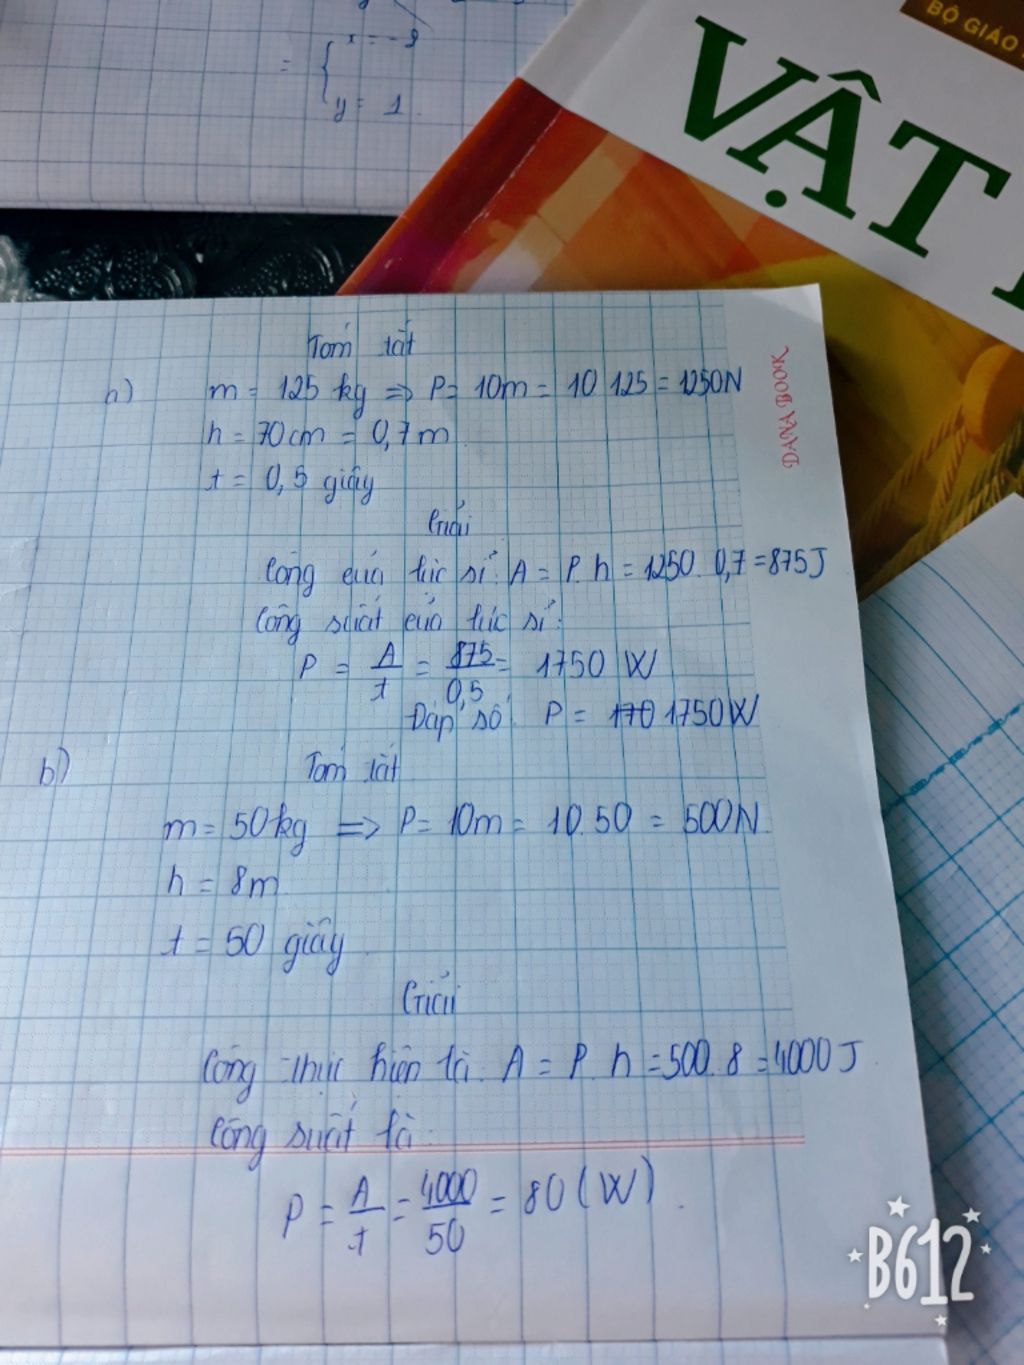 x = -9
= {
y = 1
BỘ GIÁO
VẬT
DANA BOOK
Tóm tắt
a) m = 125 kg => P = 10m = 10.125 = 1250N
h = 70cm = 0,7m
t = 0,5 giây
Giải
Công của lực sĩ: A = P.h = 1250.0,7 = 875J
Công suất của lực sĩ:
P = A/t = 875/0,5 = 1750 W
Đáp số: P = 170 1750W
b) Tóm tắt
m = 50kg => P = 10m = 10.50 = 500N
h = 8m
t = 50 giây
Giải
Công thực hiện là: A = P.h = 500.8 = 4000J
Công suất là:
P = A/t = 4000/50 = 80 (W).
B612